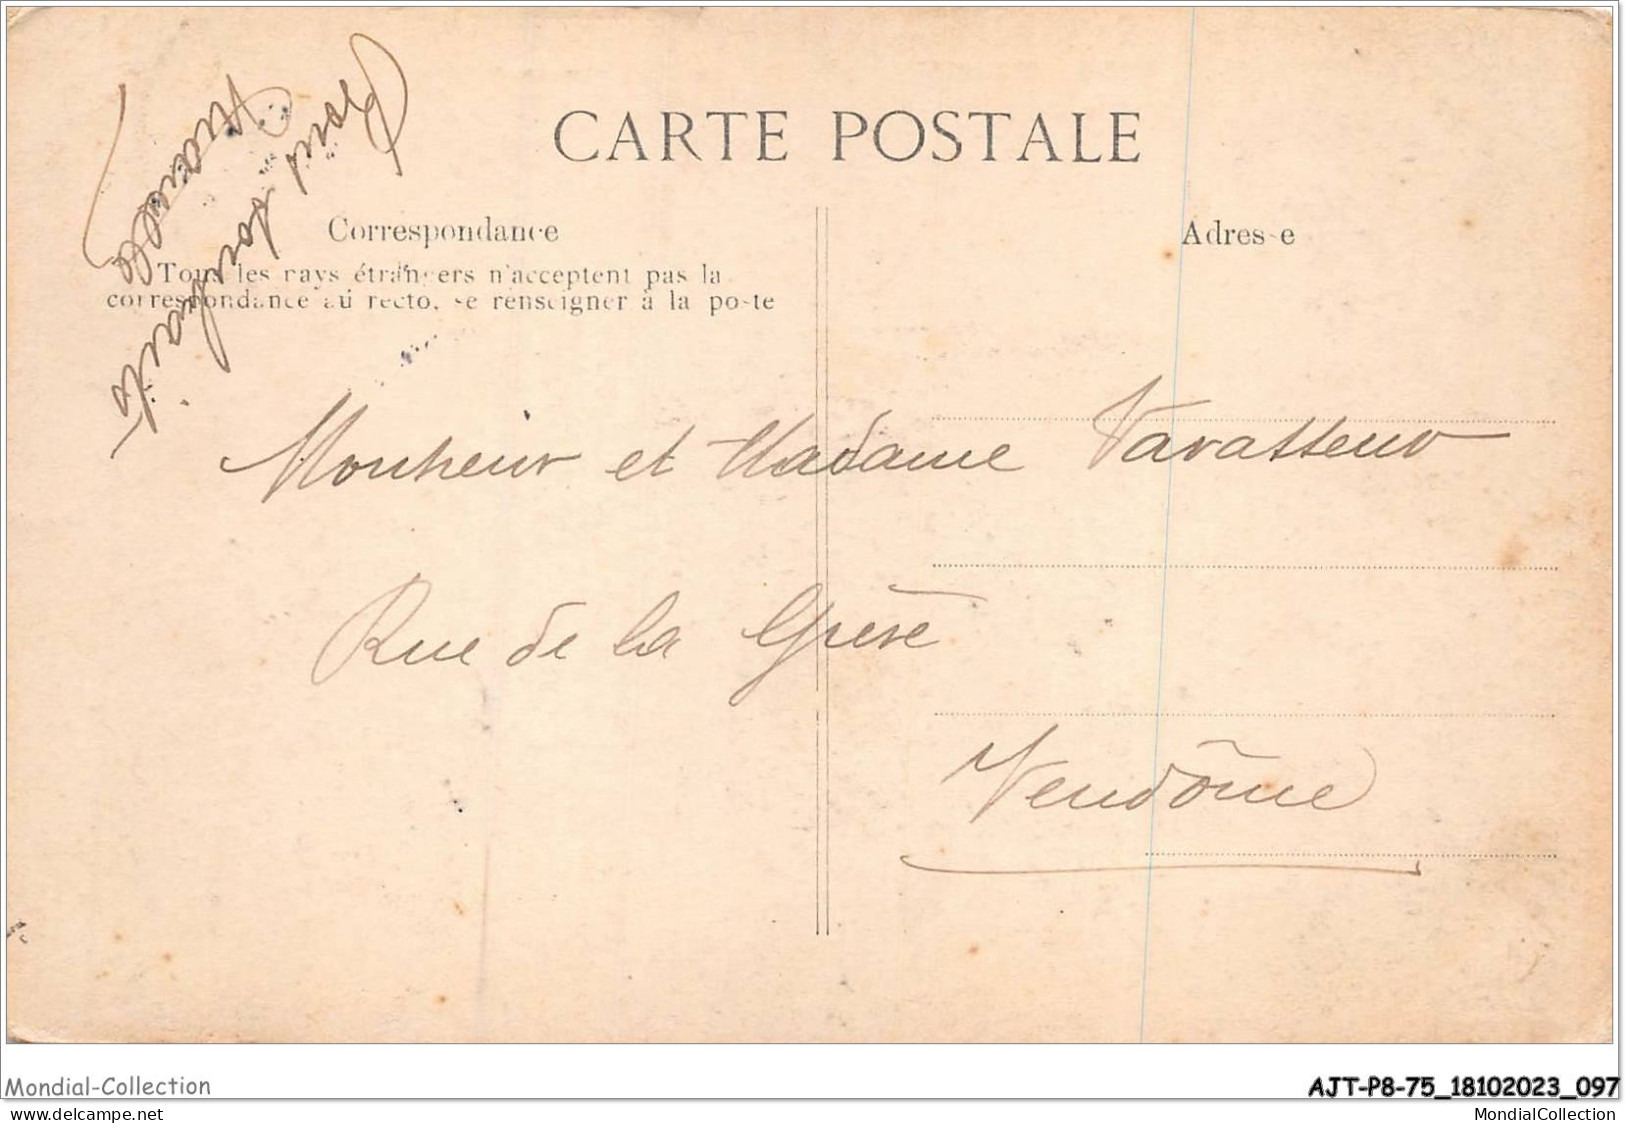 CARTE POSTALE
Bons souhaits
Correspondance
Adresse
Tous les pays étrangers n'acceptent pas la
correspondance au recto, se renseigner à la poste
Monsieur et Madame Vavasseur
Rue de la Grève
Vendôme
Mondial-Collection
AJT-P8-75_18102023_097
www.delcampe.net
MondialCollection